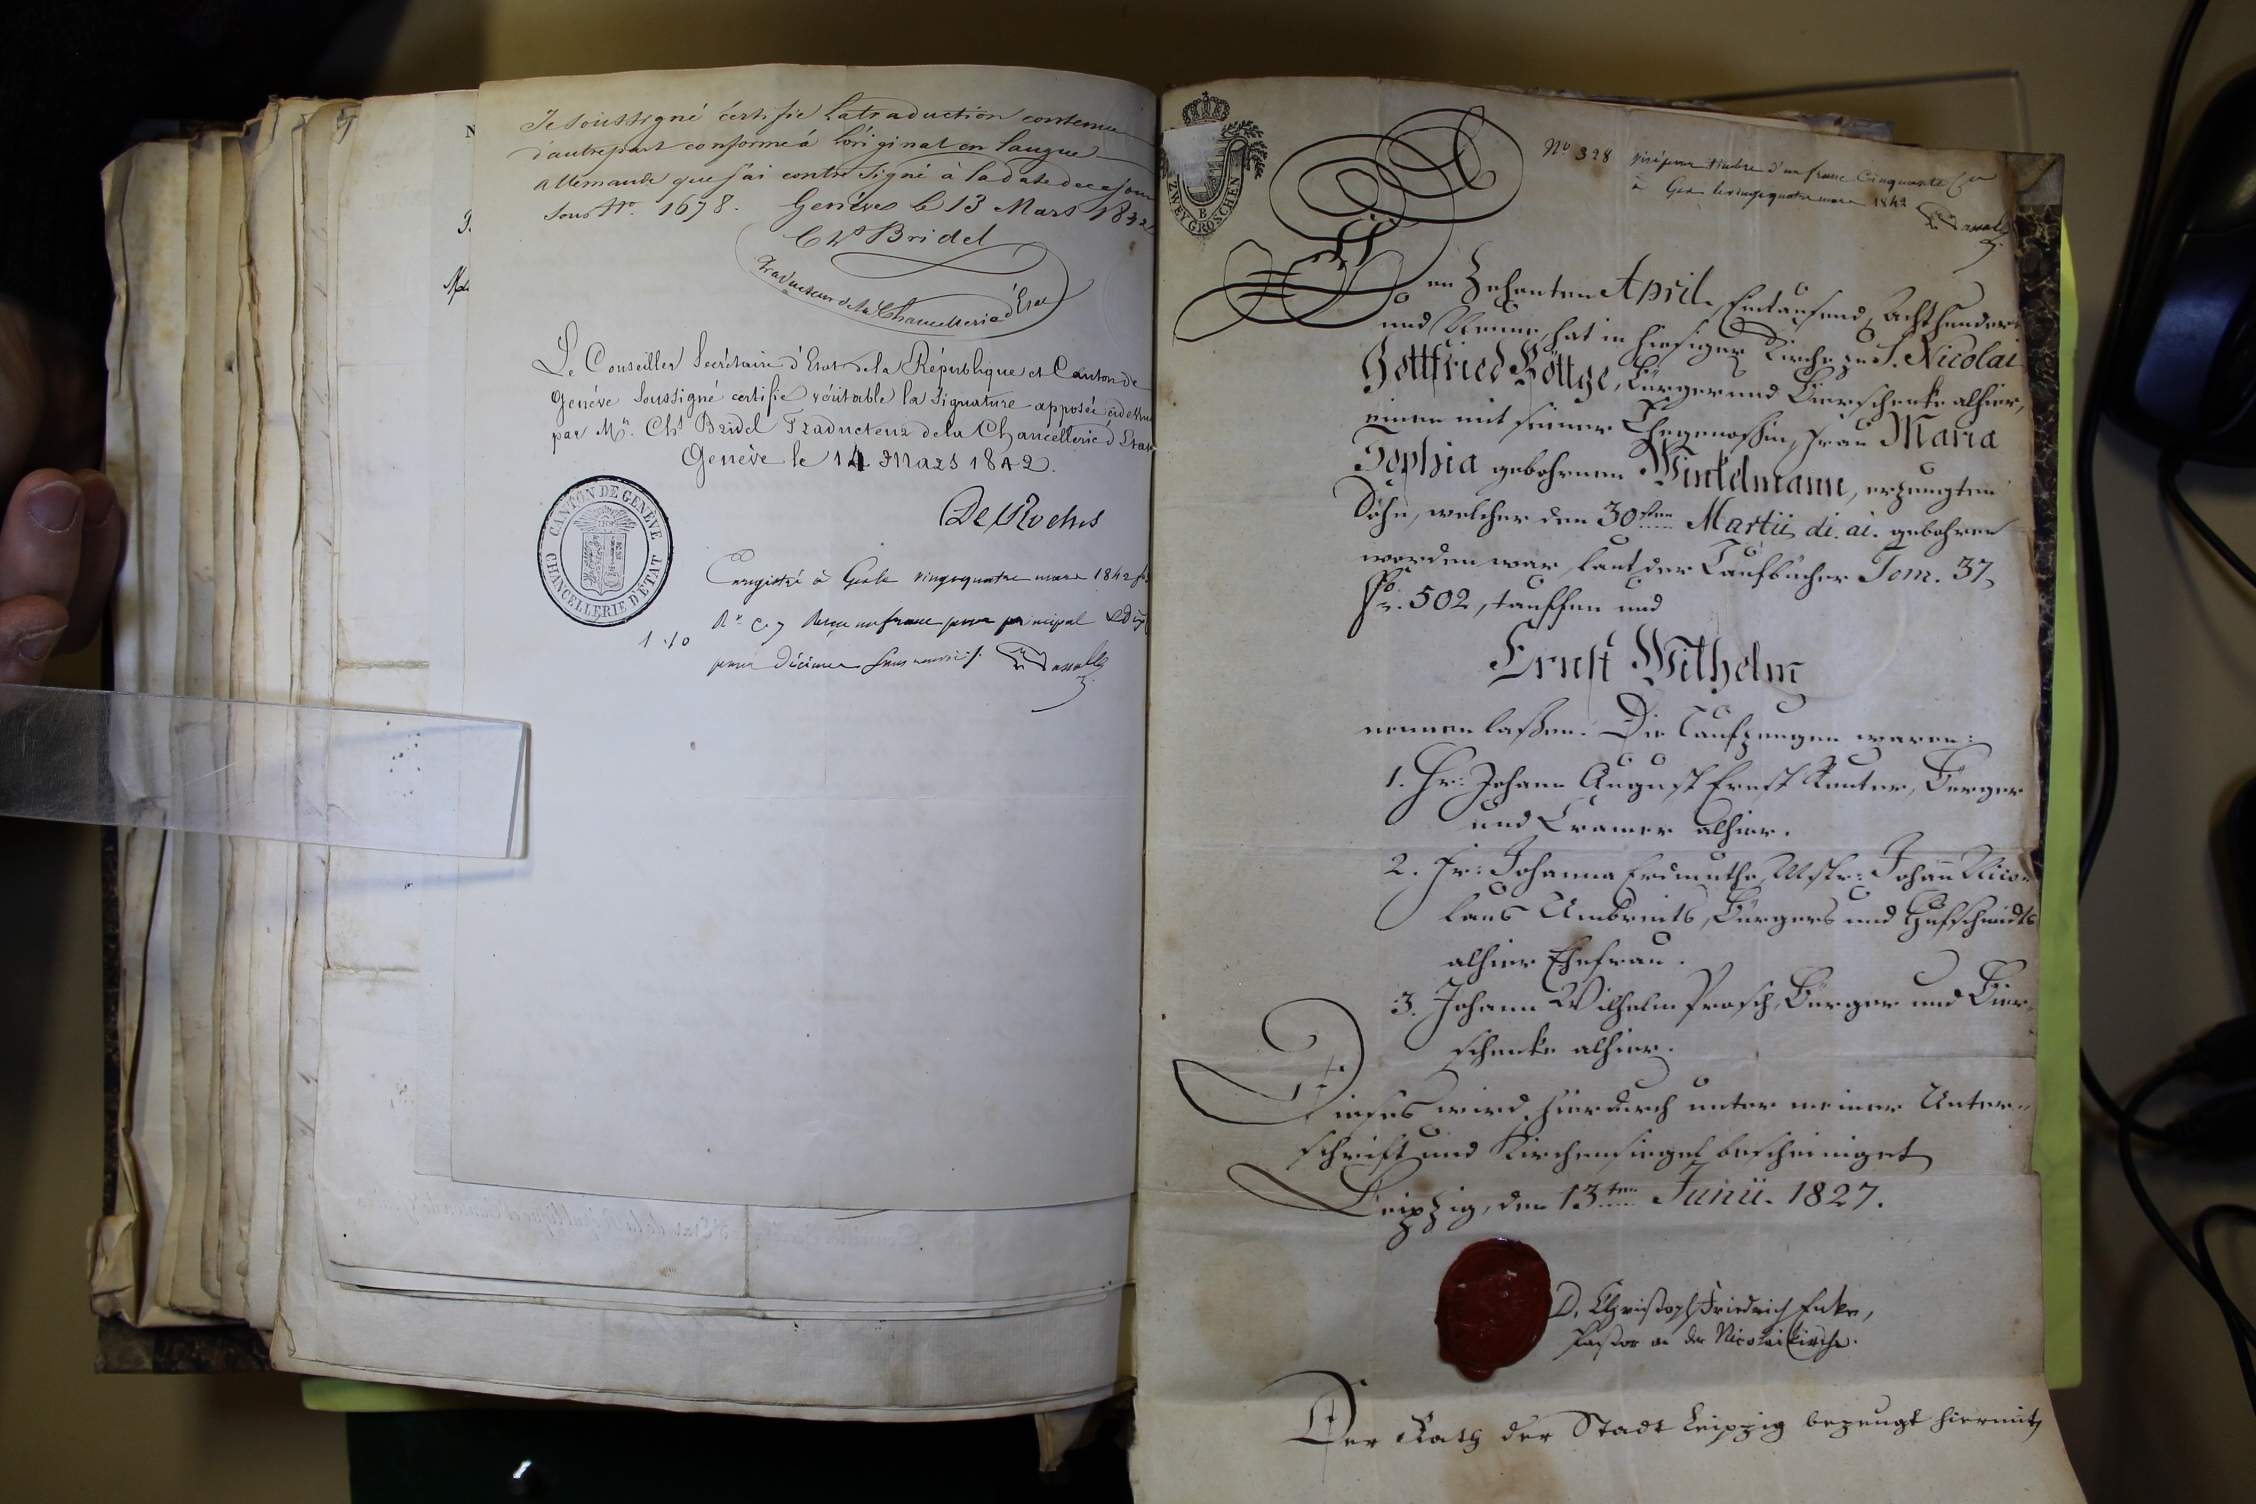 Je soussigné certifie la traduction contenue
d'autrepart conforme à l'original en langue
allemande que j'ai contresigné à la date de ce jour
sous No. 1678. Genève le 13 Mars 1842
Chs Bridel
Traducteur de la Chancellerie d'Etat
Le Conseiller Secrétaire d'Etat de la République et Canton de
Genève soussigné certifie véritable la signature apposée ci dessus
par Mr. Chs Bridel Traducteur de la Chancellerie d'Etat
Genève le 14 Mars 1842.
DeRoches
CANTON DE GENEVE
CHANCELLERIE D'ETAT
Enregistré à Gex le vingt quatre mars 1842
Reçu un franc pour principal
1.10
pour décime
ZWEY GROSCHEN
B
No 328 visé pour timbre d'un franc cinquante
à Gex le vingt quatre mars 1842
Den Zehenten April, Eintausend, Achthundert
und Neune, hat in hiesiger Kirche zu S. Nicolai
Gottfried Göttge, Bürger und Bierschenke alhier,
einen mit seiner Ehegenossin, Frau Maria
Sophia gebohrnen Winkelmann, erzeugten
Sohn, welcher den 30sten Martii, di. ai. gebohren
worden war, laut der Taufbücher Tom. 37,
Fo. 502, tauffen und
Ernst Wilhelm
nennen laßen. Die Taufzeugen waren:
1. Hr: Johann August Ernst Reuter, Bürger
und Cramer alhier.
2. Fr: Johanna Erdmuthe, Mstr: Johañ Nico-
laus Umbreits, Bürgers und Hufschmidts
alhier Ehefrau.
3. Johann Wilhelm Prosch, Bürger und Bier-
schenke alhier.
Dieses wird hierdurch unter meiner Unter-
schrift und Kirchensiegel bescheiniget
Leipzig, den 13ten Junii. 1827.
D. Christoph Friedrich Enke,
Pastor an der Nicolaikirche.
Der Rath der Stadt Leipzig bezeugt hiermit,